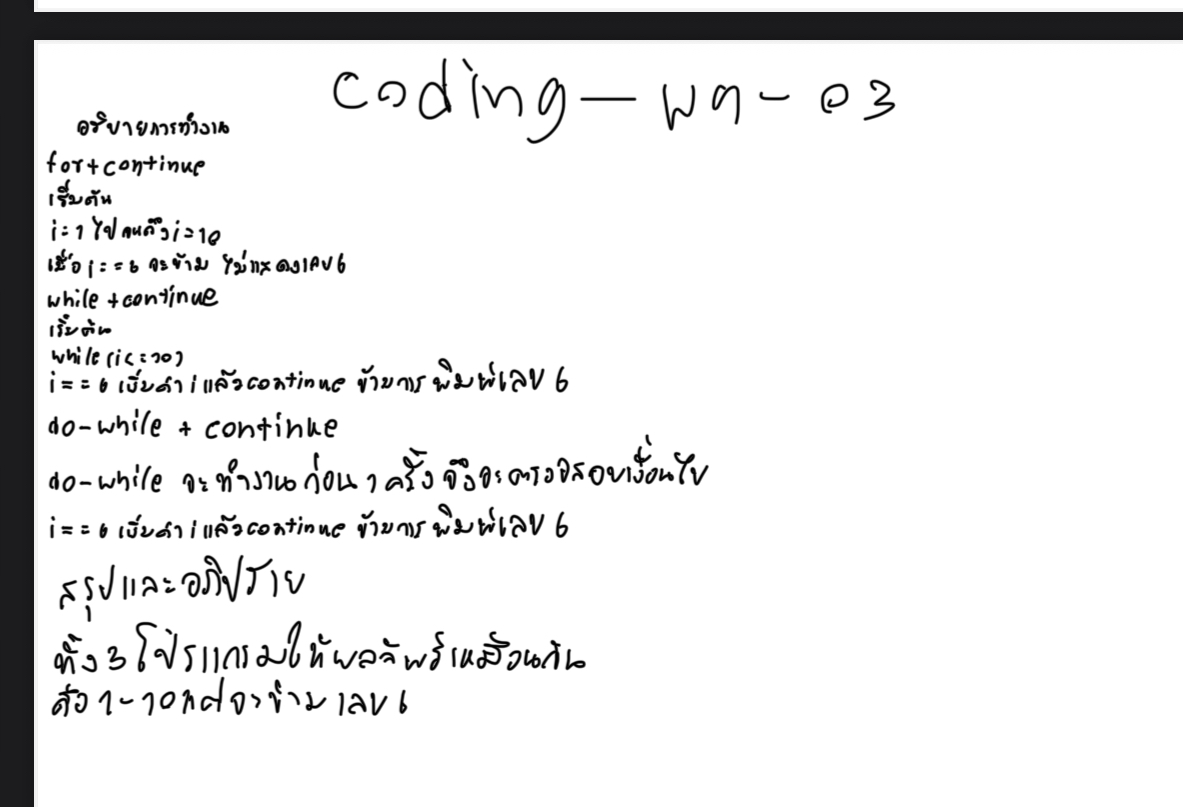 coding - พฤ - 03
อธิบายการทำงาน
for+continue
เริ่มต้น
i=1 ไปจนถึง i=10
เมื่อ i==6 จะข้าม ไม่แสดงเลข 6
while +continue
เริ่มต้น
while (i<=10)
i==6 เพิ่มค่า i แล้ว continue ข้ามการ พิมพ์เลข 6
do-while + continue
do-while จะทำงานก่อน 1 ครั้ง จึงจะตรวจสอบเงื่อนไข
i==6 เพิ่มค่า i แล้ว continue ข้ามการ พิมพ์เลข 6
สรุปและอภิปราย
ทั้ง 3 โปรแกรมให้ผลลัพธ์เหมือนกัน
คือ 1-10 แต่จะข้าม เลข 6